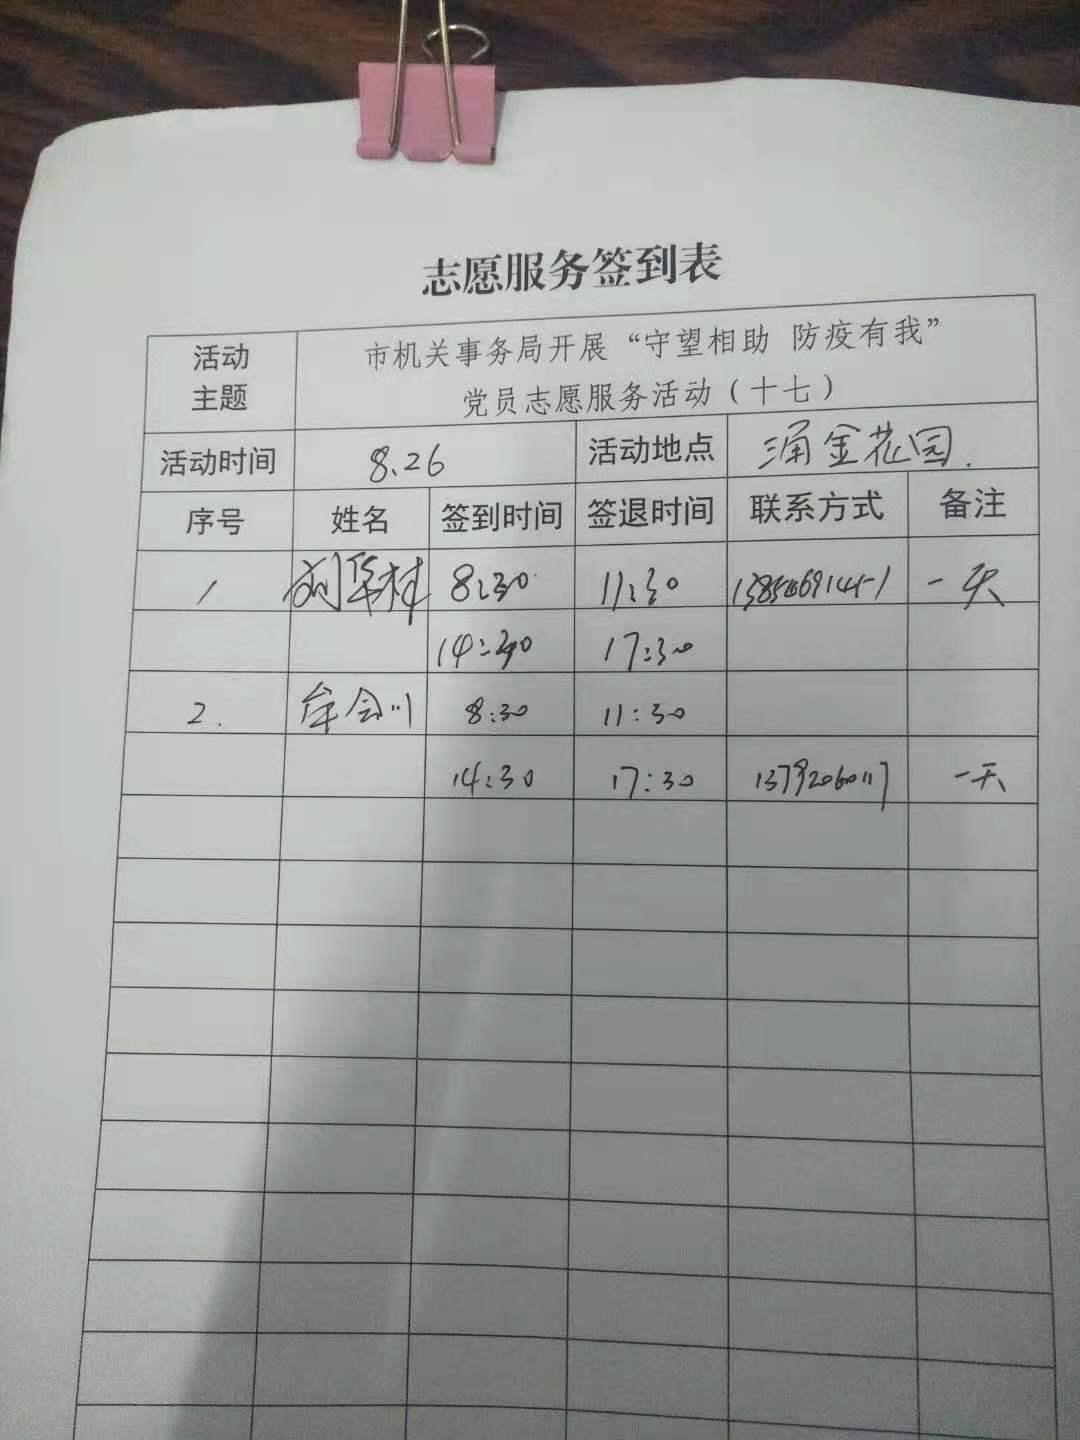 志愿服务签到表
活动主题 市机关事务局开展“守望相助 防疫有我”
党员志愿服务活动（十七）
活动时间 8.26 活动地点 涌金花园.
序号 姓名 签到时间 签退时间 联系方式 备注
1 8:30 11:30 一天
14:30 17:30
2. 牟会川 8:30 11:30
14:30 17:30 13792060117 一天